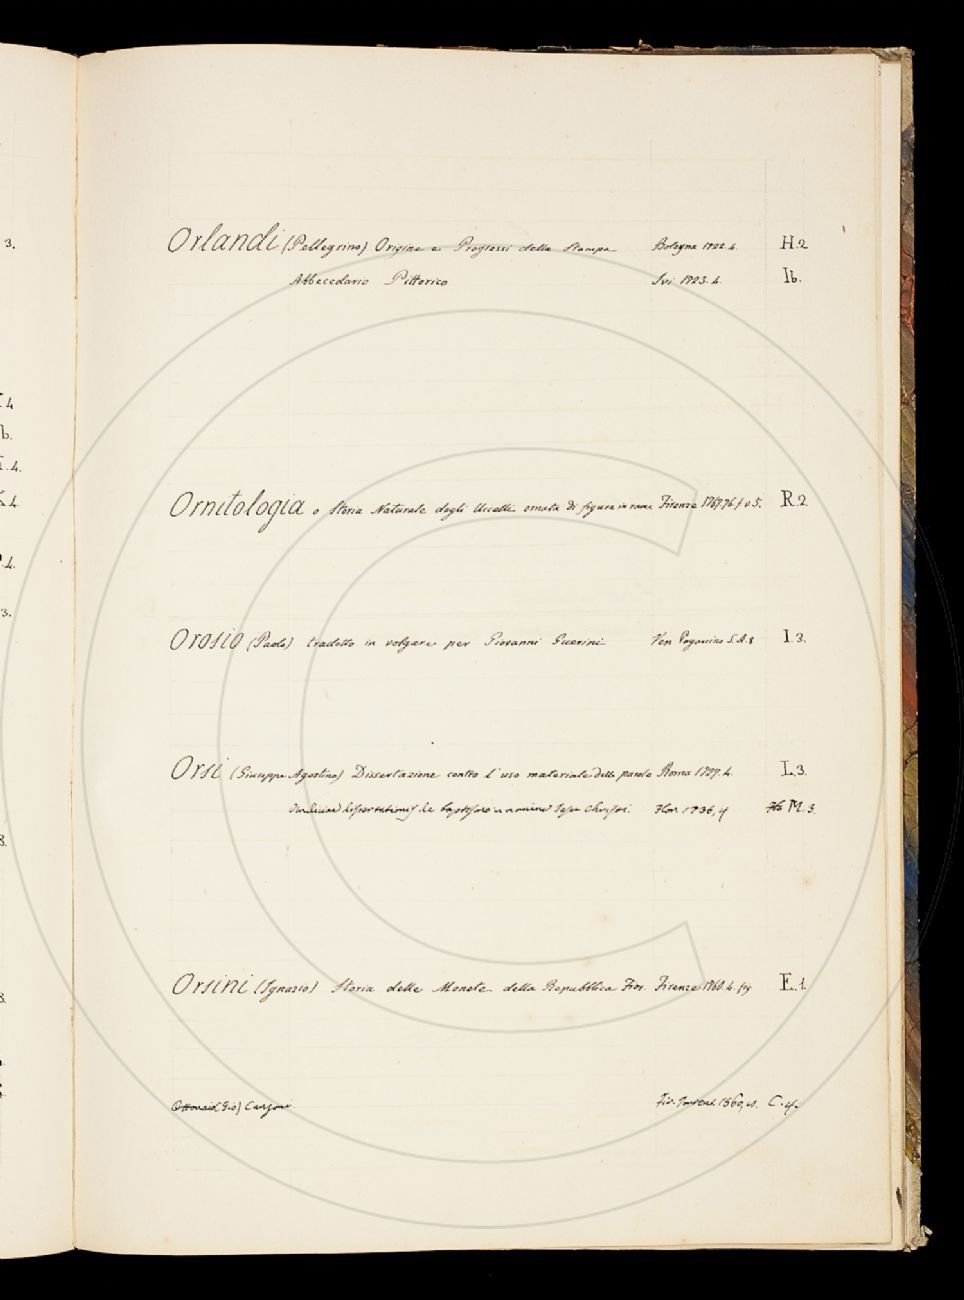 3.
Orlandi (Pellegrino) Origine e Progressi della Stampa Bologna 1722. 4. H.2
Abbecedario Pittorico Ivi 1723. 4. Ib.
4
b.
.4.
4
Ornitologia o Storia Naturale degli Uccelli ornata di figure in rame Firenze 1767.76. f. v. 5. R.2
.4.
3.
Orosio (Paolo) tradotto in volgare per Giovanni Guerini Ven Paganino S.A. 8 I.3.
Orsi (Giuseppe Agostino) Dissertazione contro l'uso materiale delle parole Roma 1727. 4. L.3.
Vindiciae dissertationis de baptismo in nomine Jesu Christi. Flor. 1736, 4 M.3.
8.
Orsini (Ignazio) Storia delle Monete della Repubblica Fior. Firenze 1760. 4. fig E.1.
8.
Ottonaio (Gio) Canzoni. Fir. Torrent. 1560, C. 4.